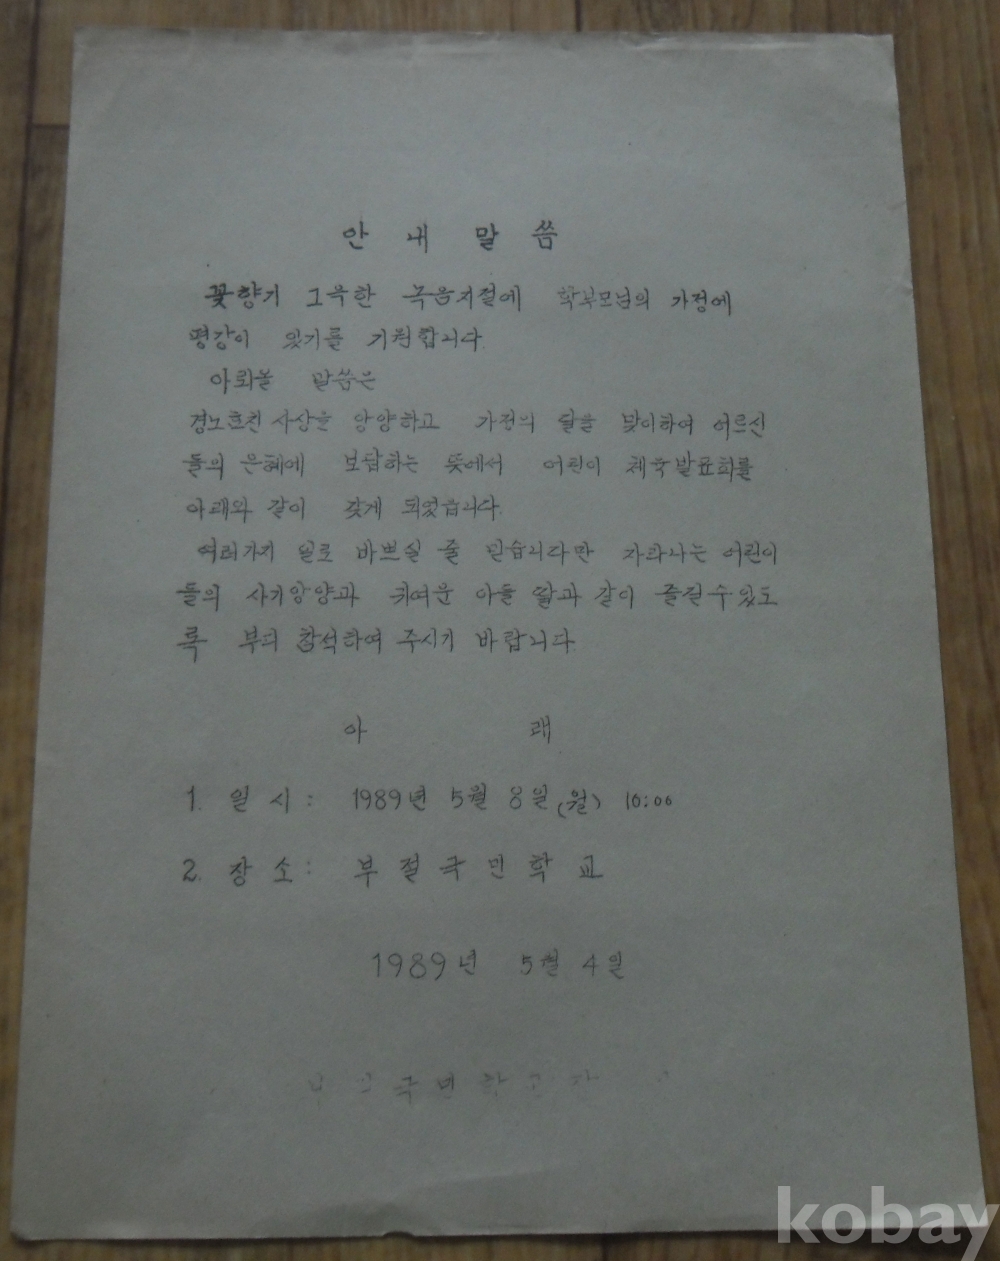 안 내 말 씀
꽃향기 그윽한 녹음지절에 학부모님의 가정에
평강이 있기를 기원합니다.
아뢰올 말씀은
경노효친 사상을 앙양하고 가정의 달을 맞이하여 어르신
들의 은혜에 보답하는 뜻에서 어린이 체육발표회를
아래와 같이 갖게 되었습니다.
여러가지 일로 바쁘실 줄 믿습니다만 자라나는 어린이
들의 사기앙양과 귀여운 아들 딸과 같이 즐길수있도
록 부디 참석하여 주시기 바랍니다
아 래
1. 일 시 : 1989년 5월 8일 (월) 10:00
2. 장 소 : 부 절 국 민 학 교
1989년 5월 4일
국 민 학 교 장
kobay